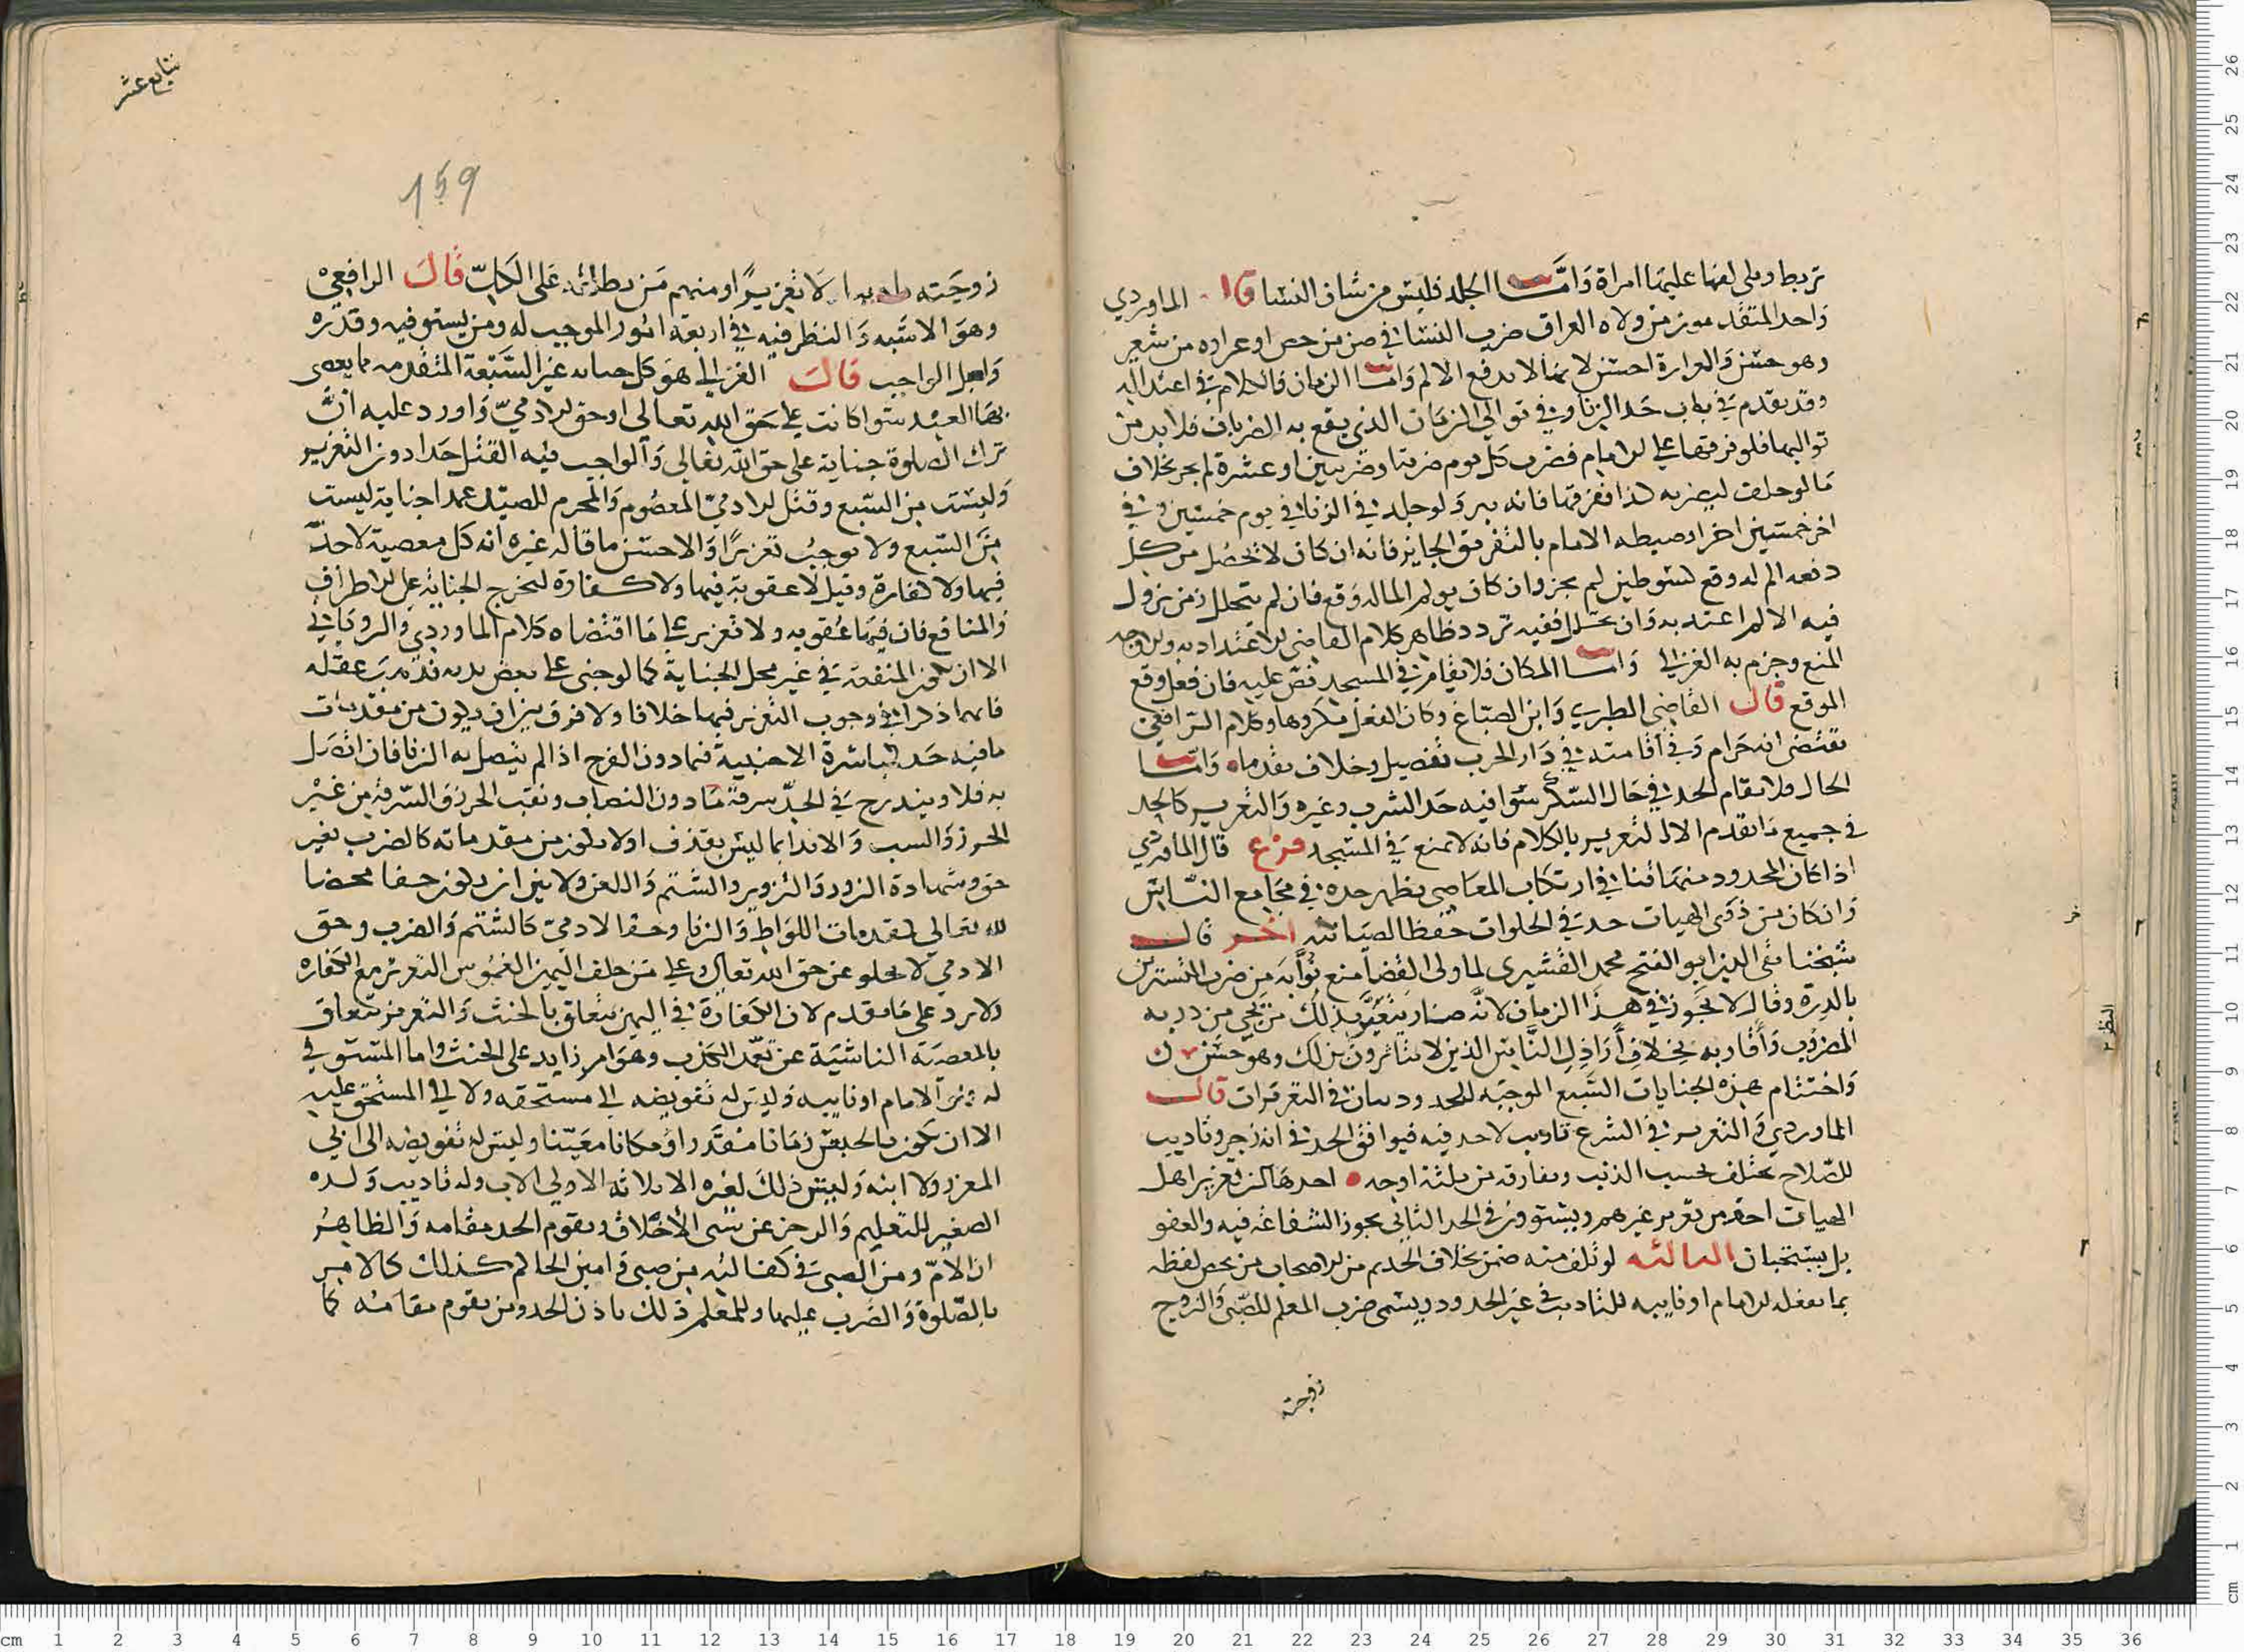 تربط وىلى لفها عليها امراة وَامَّا الجلد فليس من شان النسا قال الماوردي
واحد المتقدمون من ولاه العراق ضرب النسا في صن من حص او عراره من شعر
وهو حسن والعرارة احسن لا نها لا تدفع الالم وامّا الزمان فالكلام في اعتداله
وقد تقدم في باب حَد الزنا وفي توالي الزمان الذي يقع به الضربات فلا بد من
تواليها فلو فرقها على الامام فضرب كل يوم ضربة او ضربتين او عشرة لم يجز بخلاف
مَا لو حلف ليضربه كذا ففرقها فانه يبر وَلو جلد في الزنا في يوم خمسين وفي
اخر خمسين اخر وضبطه الامام بالتفريق الجايز فانه ان كان لا يحصل من كل
دفعه الم له وقع كسوطين لم يجز وان كان يولم الما له وَقع فان لم يتخلل زمن يزول
فيه الالم اعتد به وان تخلل ففيه تردد ظاهر كلام القاضي الاعتداد به والاوجه
المنع وجزم به الغزالي وَامَّا المكان فلا يقام في المسجد نص عليه فان فعل وقع
الموقع قال القاضي الطبري وَابن الصبّاغ وكان الفعل مكروها وكلام الرافعي
يقتضي انه حَرام وَفي اقامته في دَار الحرب تفصيل وخلاف تقدماه وَامّا
الحال فلا يقام الحد في حَال السّكر سَوا فيه حَد الشرب وغيره وَالتعزير كالحد
في جميع مَا تقدم الا التعزير بالكلام فانه لا يمنع في المسجد فرع قال الماوردي
اذا كان المحدود منهمَا في ارتكاب المعاصي يظهر حده في مجَامع النّاس
وَان كان من ذوى الهيات حد في الخلوات حفظا لصيانته اخر قال
شيخنا تقى الدين ابو الفتح محمد القشيرى لما ولى القضا منع نُوَّابَه من ضرب المتسترين
بالدرة وقال لا يَجُوز في هذا الزمان لانَّه صَار يتعيَّر بذلك من يجي من ذريه
المضروب وَاقاربه بخلافِ اَرَاذِلِ النَّاس الذين لا يتاثرون بذلك وهو حسَن
وَاختتام هذه الجنايات السّبع الموجبه للحدود بيان في التعزيرات قال
الماوردي وَالتعزير في الشرع تاديب لاحد فيه فيوافق الحد في انه زجر وتاديب
للصّلاح يختلف بحسب الذنب ويفارقه من ثلثة اوجه احدهَا ان تعزير اهل
الهيات اخف من تعزير غيرهم ويستوون في الحد الثاني يجوز الشفاعة فيه والعفو
بل يستحبان الثالثه لو تلف منه ضمن بخلاف الحد ثم من الاصحاب من يخص لفظه
بما يفعله الامام او نايبه للتاديب في غير الحدود ويسمى ضرب المعلم للصّبي وَالزوج
زوجته
سابع عشر
159
زوجَته تاديبا لا تعزيرًا ومنهم مَن يطلقه عَلى الكلّ قال الرافعي
وهوَ الاشبه وَالنظر فيه في اربعَة امُور الموجب له ومن يستوفيه وقدره
وَاصل الواجب قال الغزالي هوَ كل جنايه غير السَّبْعة المتقدمه مما يعصى
بهَا العبْد سَوا كانت على حَق الله تعالى او حق الادميّ وَاورد عليه انَّ
ترك الصلوة جناية على حق الله تعَالي وَالواجب فيه القتل حَدا دون التعزير
وَليست من السّبع وقتل الادميّ المعصُوم وَالمحرم للصيّد عمدا جناية ليست
مِنَ السّبع ولا يوجبُ تعزيرًا وَالاحسَن ما قاله غيره انه كل معصية لا حدّ
فيها ولا كفارة وقيل لا عقوبة فيها ولا كفارة لتخرج الجنايه على الاطراف
وَالمنافع فان فيهَا عُقوبه ولا تعزير على مَا اقتضاه كلام الماوردي والروياني
الا ان تكون المنفعَة في غير محل الجناية كما لو جنى على بعض بدنه فذهَبَ عقله
فانهما ذكرا في وجوب التعزير فيها خلافا ولا فرق بين ان يكون من مقدمات
ما فيه حَد كمباشرة الاجنبية فيما دون الفرج اذا لم يتصل به الزنا فان اتّصَل
به فلا ويندرج في الحدّ سرقة مَا دون النصاب ونقب الحرز وَالسّرقة من غيْر
الحرز وَالسب وَالايذا بما ليس بقذف او لا يكون من مقدماته كالضرب بغير
حق وشهادة الزور وَالتزوير والشتم وَاللعن ولا بين ان يكون حقا محضا
لله تعالى كمقدمات اللوَاط وَالزنا وحقا لادميّ كالشتم وَالضرب وحق
الادمي لا يخلو عن حق الله تعالى وعلى مَن حلف اليمين الغمُوس التعزير مع الكفاره
ولا يرد على مَا تقدم لان الكفارة في اليمين يتعلق بالحنث وَالتعزير يتعلق
بالمعصيَة الناشيَة عن تعمّد الكذب وهوَ امر زايد على الحنث واما المستوفي
له فهو الامام او نايبه وَليس له تفويضه الى مستحقه ولا الى المستحق عليه
الا ان يكون بالحبس زمَانا مُقدَّرا وَمكانا معَيّنا وليس له تفويضه الى ابي
المعزر ولا ابنه وَليسَ ذلك لغيره الا ثلاثه الاولى الاب وله تاديب وَلده
الصغير للتعليم وَالزجر عن سَى الأخلاق ويقوم الجد مقامه وَالظاهرُ
ان الأمّ ومن الصبى في كفالته من صبى وامين الحاكم كذلك كالامر
بالصّلوة وَالضرب عليها وللمعلم ذلك باذن الجد ومن يقوم مقامه كما